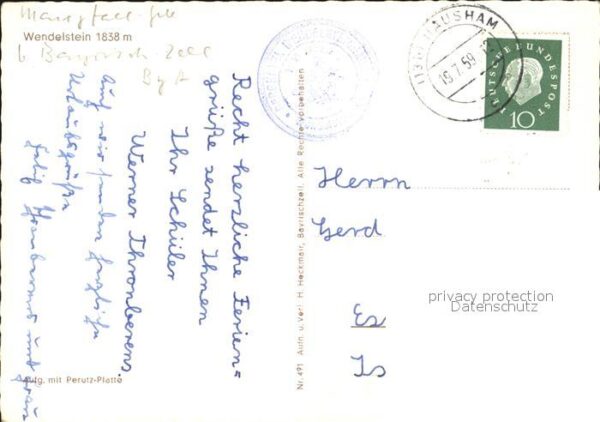 Wendelstein 1838 m
b. Bayrisch Zell
Recht herzliche Ferien=
grüße sendet Ihnen
Ihr Schüler
Werner Thronberens.
Auch wir senden herzliche
Urlaubsgrüße
und Frau
Aufg. mit Perutz-Platte
Nr. 491 Aufn. u. Verl. H. Heckmair, Bayrischzell. Alle Rechte vorbehalten
(13b) HAUSHAM
19.7.59
DEUTSCHE BUNDESPOST
10
Herrn
Gerd
Es
Is
privacy protection
Datenschutz